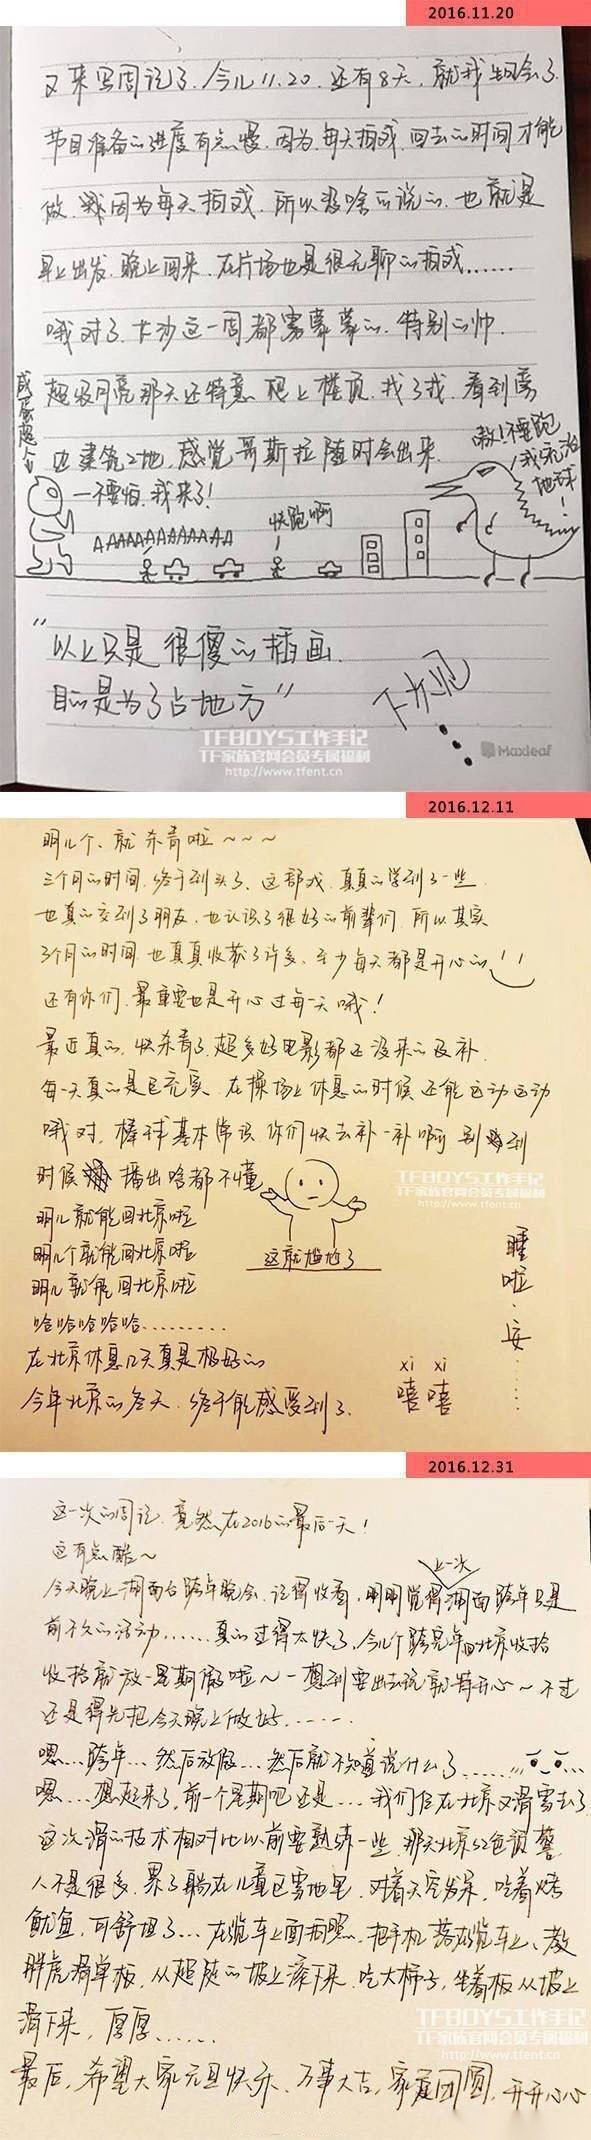 2016.11.20
又来写周记了.今儿11.20.还有8天.就我生日会了.
节目准备的进度有点慢.因为每天拍戏.回去的时间才能
做.因为每天拍戏.所以没啥可说的.也就是
早上出发.晚上回来.在片场也是很无聊的拍戏......
哦对了.长沙这一周都雾蒙蒙的.特别的帅.
超级月亮那天还特意爬上楼顶.找了找.看到旁
边建筑工地.感觉哥斯拉随时会出来.
咸蛋超人
不要怕.我来了!
AAAAAAAAAAAA
快跑啊
嗷!不要跑
我统治
地球!
"以上只是很傻的插画.
目的是为了占地方"
下次见
TFBOYS工作手记
TF家族官网会员专属福利
http://www.tfent.cn
Maxleaf
2016.12.11
明儿个、就杀青啦~~~
三个月的时间.终于到头了.这部戏.真真的学到了一些.
也真的交到了朋友.也认识了很好的前辈们.所以其实
3个月的时间.也真真收获了许多.至少每天都是开心的
还有你们.最重要也是开心过每一天哦!
最近真的.快杀青了.超多好电影都还没来的及补.
每一天真的是巨充实.在操场上休息的时候还能运动运动
哦对.棒球基本常识你们快去补一补啊.别到
时候播出啥都不懂
这就尴尬了
TFBOYS工作手记
TF家族官网会员专属福利
明儿就能回北京啦
明儿个就能回北京啦
明儿就能回北京啦
哈哈哈哈哈.........
在北京休息几天真是极好的
今年北京的冬天.终于能感受到了.
xi xi
嘻嘻
睡啦.安......
2016.12.31
这一次的周记.竟然在2016的最后一天!
这有点酷~
上一次
今天晚上湖南台跨年晚会.记得收看,明明觉得湖南跨年只是
前不久的活动......真的过得太快了,今儿个跨完年回北京收拾
收拾就放一星期假啦~一想到要出去玩就特开心~不过
还是得先把今天晚上做好......
嗯...跨年...然后放假...然后就不知道说什么了......
嗯...想起来了,前一个星期吧还是...我们在北京又滑雪去了
这次滑的技术相对比以前要熟练一些.那天北京红色预警.
人不是很多.累了躺在儿童区雪地里.对着天空发呆,吃着烤
鱿鱼,可舒坦了...在缆车上面拍照.把手机落在缆车上、教
胖虎滑单板,从超陡的坡上滚下来.吃大柿子,坐着板从坡上
滑下来,厚厚......
TFBOYS工作手记
TF家族官网会员专属福利
http://www.tfent.cn
最后,希望大家元旦快乐.万事大吉,家庭团圆,开开心心